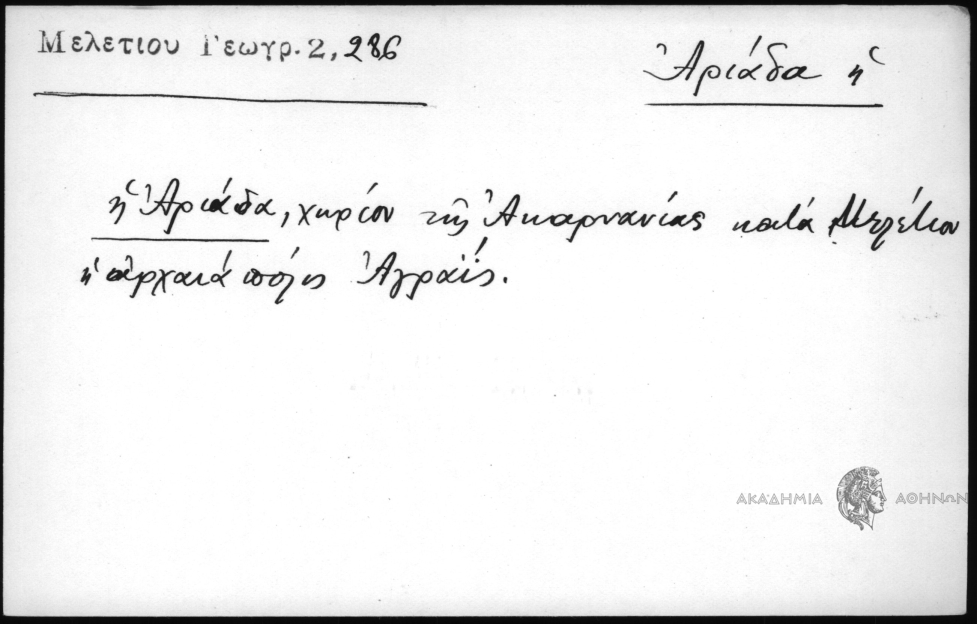 Μελετίου Γεωγρ. 2, 286
Ἀριάδα ἡ
ἡ Ἀριάδα, χωρίον τῆς Ἀκαρνανίας κατά Μελέτιον
ἡ ἀρχαιά πόλις Ἀγραΐς.
ΑΚΑΔΗΜΙΑ ΑΘΗΝΩΝ